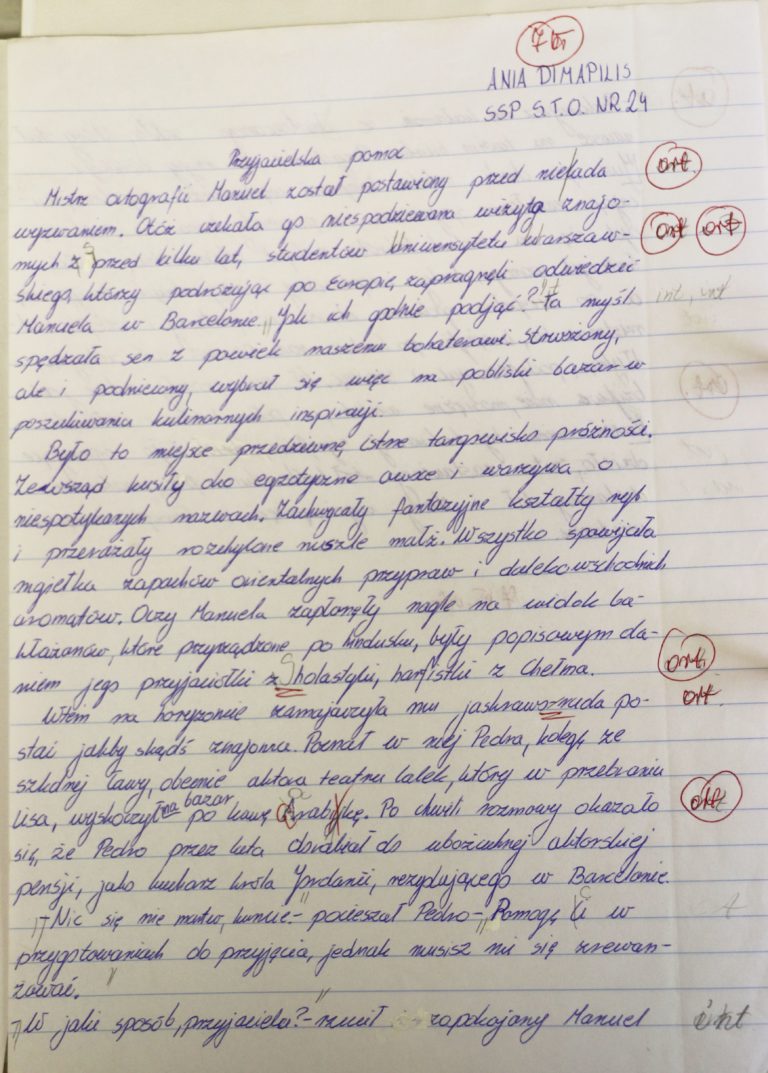 7 bł
ANIA DIMAPILIS
SSP S.T.O. NR 24
Przyjacielska pomoc
Mistrz ortografii Manuel został postawiony przed nielada ort.
wyzwaniem. Otóż czekała go niespodziewana wizyta znajo-
mych z przed kilku lat, studentów Uniwersytetu Warszaw- ort ort
skiego, którzy podróżując po Europie, zapragnęli odwiedzić
Manuela w Barcelonie. „Jak ich godnie podjąć?" - ta myśl int, int
spędzała sen z powiek naszemu bohaterowi. Strwożony,
ale i podniecony, wybrał się więc na pobliski bazar w
poszukiwaniu kulinarnych inspiracji.
Było to miejsce przedziwne, istne targowisko próżności.
Zewsząd kusiły oko egzotyczne owoce i warzywa o
niespotykanych nazwach. Zachwycały fantazyjne kształty ryb
i przerażały rozchylone muszle małż. Wszystko spowijała
mgiełka zapachów orientalnych przypraw i dalekowschodnich
aromatów. Oczy Manuela zapłonęły nagle na widok ba-
kłażanów, które przyrządzone po hindusku, były popisowym da-
niem jego przyjaciółki z Sholastyki, harfistki z Chełma. ort.
Wtem na horyzoncie zamajaczyła mu jaskraworuda po- ort.
stać jakby skądś znajoma. Poznał w niej Pedra, kolegę ze
szkolnej ławy, obecnie aktora teatru lalek, który w przebraniu
lisa, wyskoczył na bazar po kawę Arabikę. Po chwili rozmowy okazało ort
się, że Pedro przez lata dorabiał do ubożuchnej aktorskiej
pensji, jako kucharz króla Jordanii, rezydującego w Barcelonie.
„- Nic się nie martw, kumie - pocieszał Pedro -„ Pomogę Ci w
przygotowaniach do przyjęcia, jednak musisz mi się zrewan-
żować.
„W jaki sposób, przyjacielu? - rzucił zapokojony Manuel int